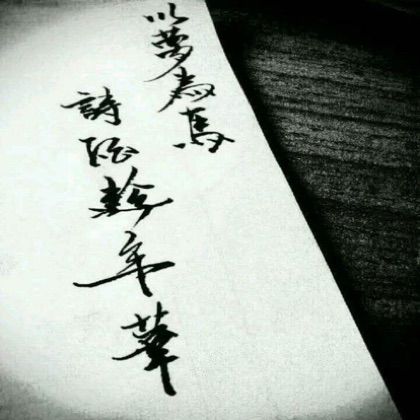 以夢為馬
詩酒趁年華